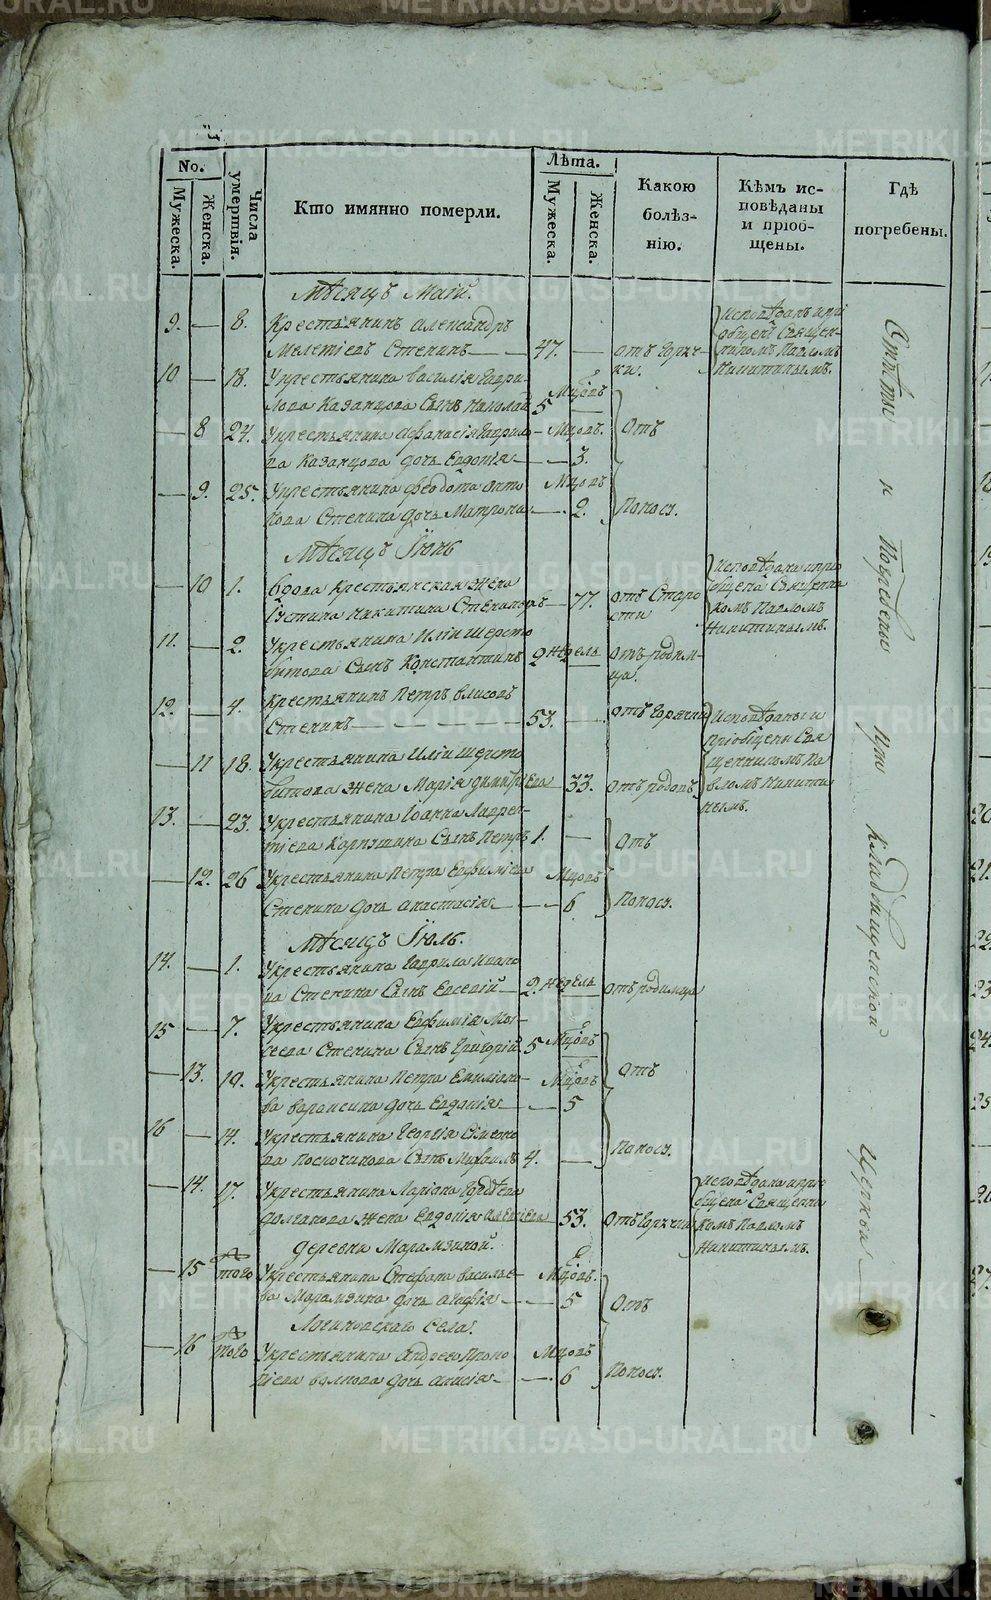 No.
Мужеска.
Женска.
Числа умертвія.
Кто имянно померли.
Лѣта.
Мужеска.
Женска.
Какою болѣз-
нію.
Кѣмъ ис-
повѣданы
и пріоб-
щены.
Гдѣ
погребены.
Мѣсяцъ Маій.
9. — 8. Крестьянинъ Александръ
Мелетіевъ Стенинъ — 47. — отъ Горяч-
ки.
Исповѣданъ и прі
общенъ Священ-
никомъ Павломъ
Никитинымъ.
10 — 18. У крестьянина Василія Гаври-
лова Казанцова Сынъ Николай 5 Мцовъ —
— 8 24. У крестьянина Афанасія Гаврило-
ва Казанцова дочь Евдокія — — Мцовъ. 3.
Отъ
— 9. 25. У крестьянина Феодота
Стенина дочь Матрона — Мцовъ 2. Поноса.
Мѣсяцъ Іюнь
— 10 1. Вдова крестьянская жена
Іустина Никитина — 77. отъ Старо
сти
Исповѣдана и пріо
бщена Священни
комъ Павломъ
Никитинымъ.
11. — 2. У крестьянина Иліи Шерсто
битова Сынъ Константинъ 2 Недель — отъ родим-
ца.
12. — 4. Крестьянинъ Петръ
Стенинъ — 53. — отъ Горячки
Исповѣданы и
пріобщены Свя
щенникомъ Па
вломъ Никити
нымъ.
— 11 18. У крестьянина Иліи Шерсто
битова жена Марія Димитріева — 33. отъ родовъ
13. — 23. У крестьянина Іоанна Лаврен-
тіева Сынъ Петръ 1. — Отъ
— 12. 26 У крестьянина Петра Евфиміева
Стенина дочь Анастасія — — Мцовъ 6 Поноса.
Мѣсяцъ Іюль.
14. — 1. У крестьянина Гаврила Ивано
ва Стенина Сынъ Евсевій — 2 недель отъ родимца
15 — 7. У крестьянина Евфимія Мои-
сеева Стенина Сынъ Григорій 5 Мцовъ
— 13. 10. У крестьянина Петра Емиліано-
ва Вараксина дочь Евдокія — — Мцовъ 5
Отъ
16 — 14. У крестьянина Георгія Симеоно
ва Поскочинова Сынъ Михаилъ 4. — Поноса.
— 14. 17. У крестьянина Ларіона Гордѣева
Долганова жена Евдокія — 53. Отъ Горячки
Исповѣдана и пріо
бщена Священни
комъ Павломъ
Никитинымъ.
Деревни Марамзиной.
— 15 того У крестьянина Стефана Василье-
ва Марамзина дочь Агафія — — Мцовъ. 5 Отъ
Логиновскаго Села.
— 16 того У крестьянина Андрея Проко
піева Волкова дочь Анисія — — Мцовъ 6 Поноса.
Отпѣты и Погребены при Кладбищенской Церкви —
METRIKI.GASO-URAL.RU